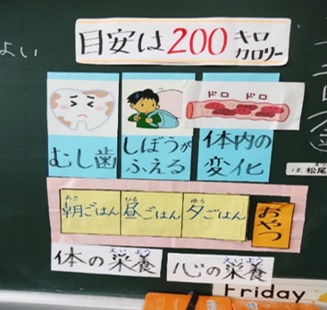 よい
目安は200キロカロリー
ドロドロ
むし歯
しぼうがふえる
体内の変化
朝ごはん 昼ごはん 夕ごはん
おやつ
体の栄養 心の栄養
松尾
Friday